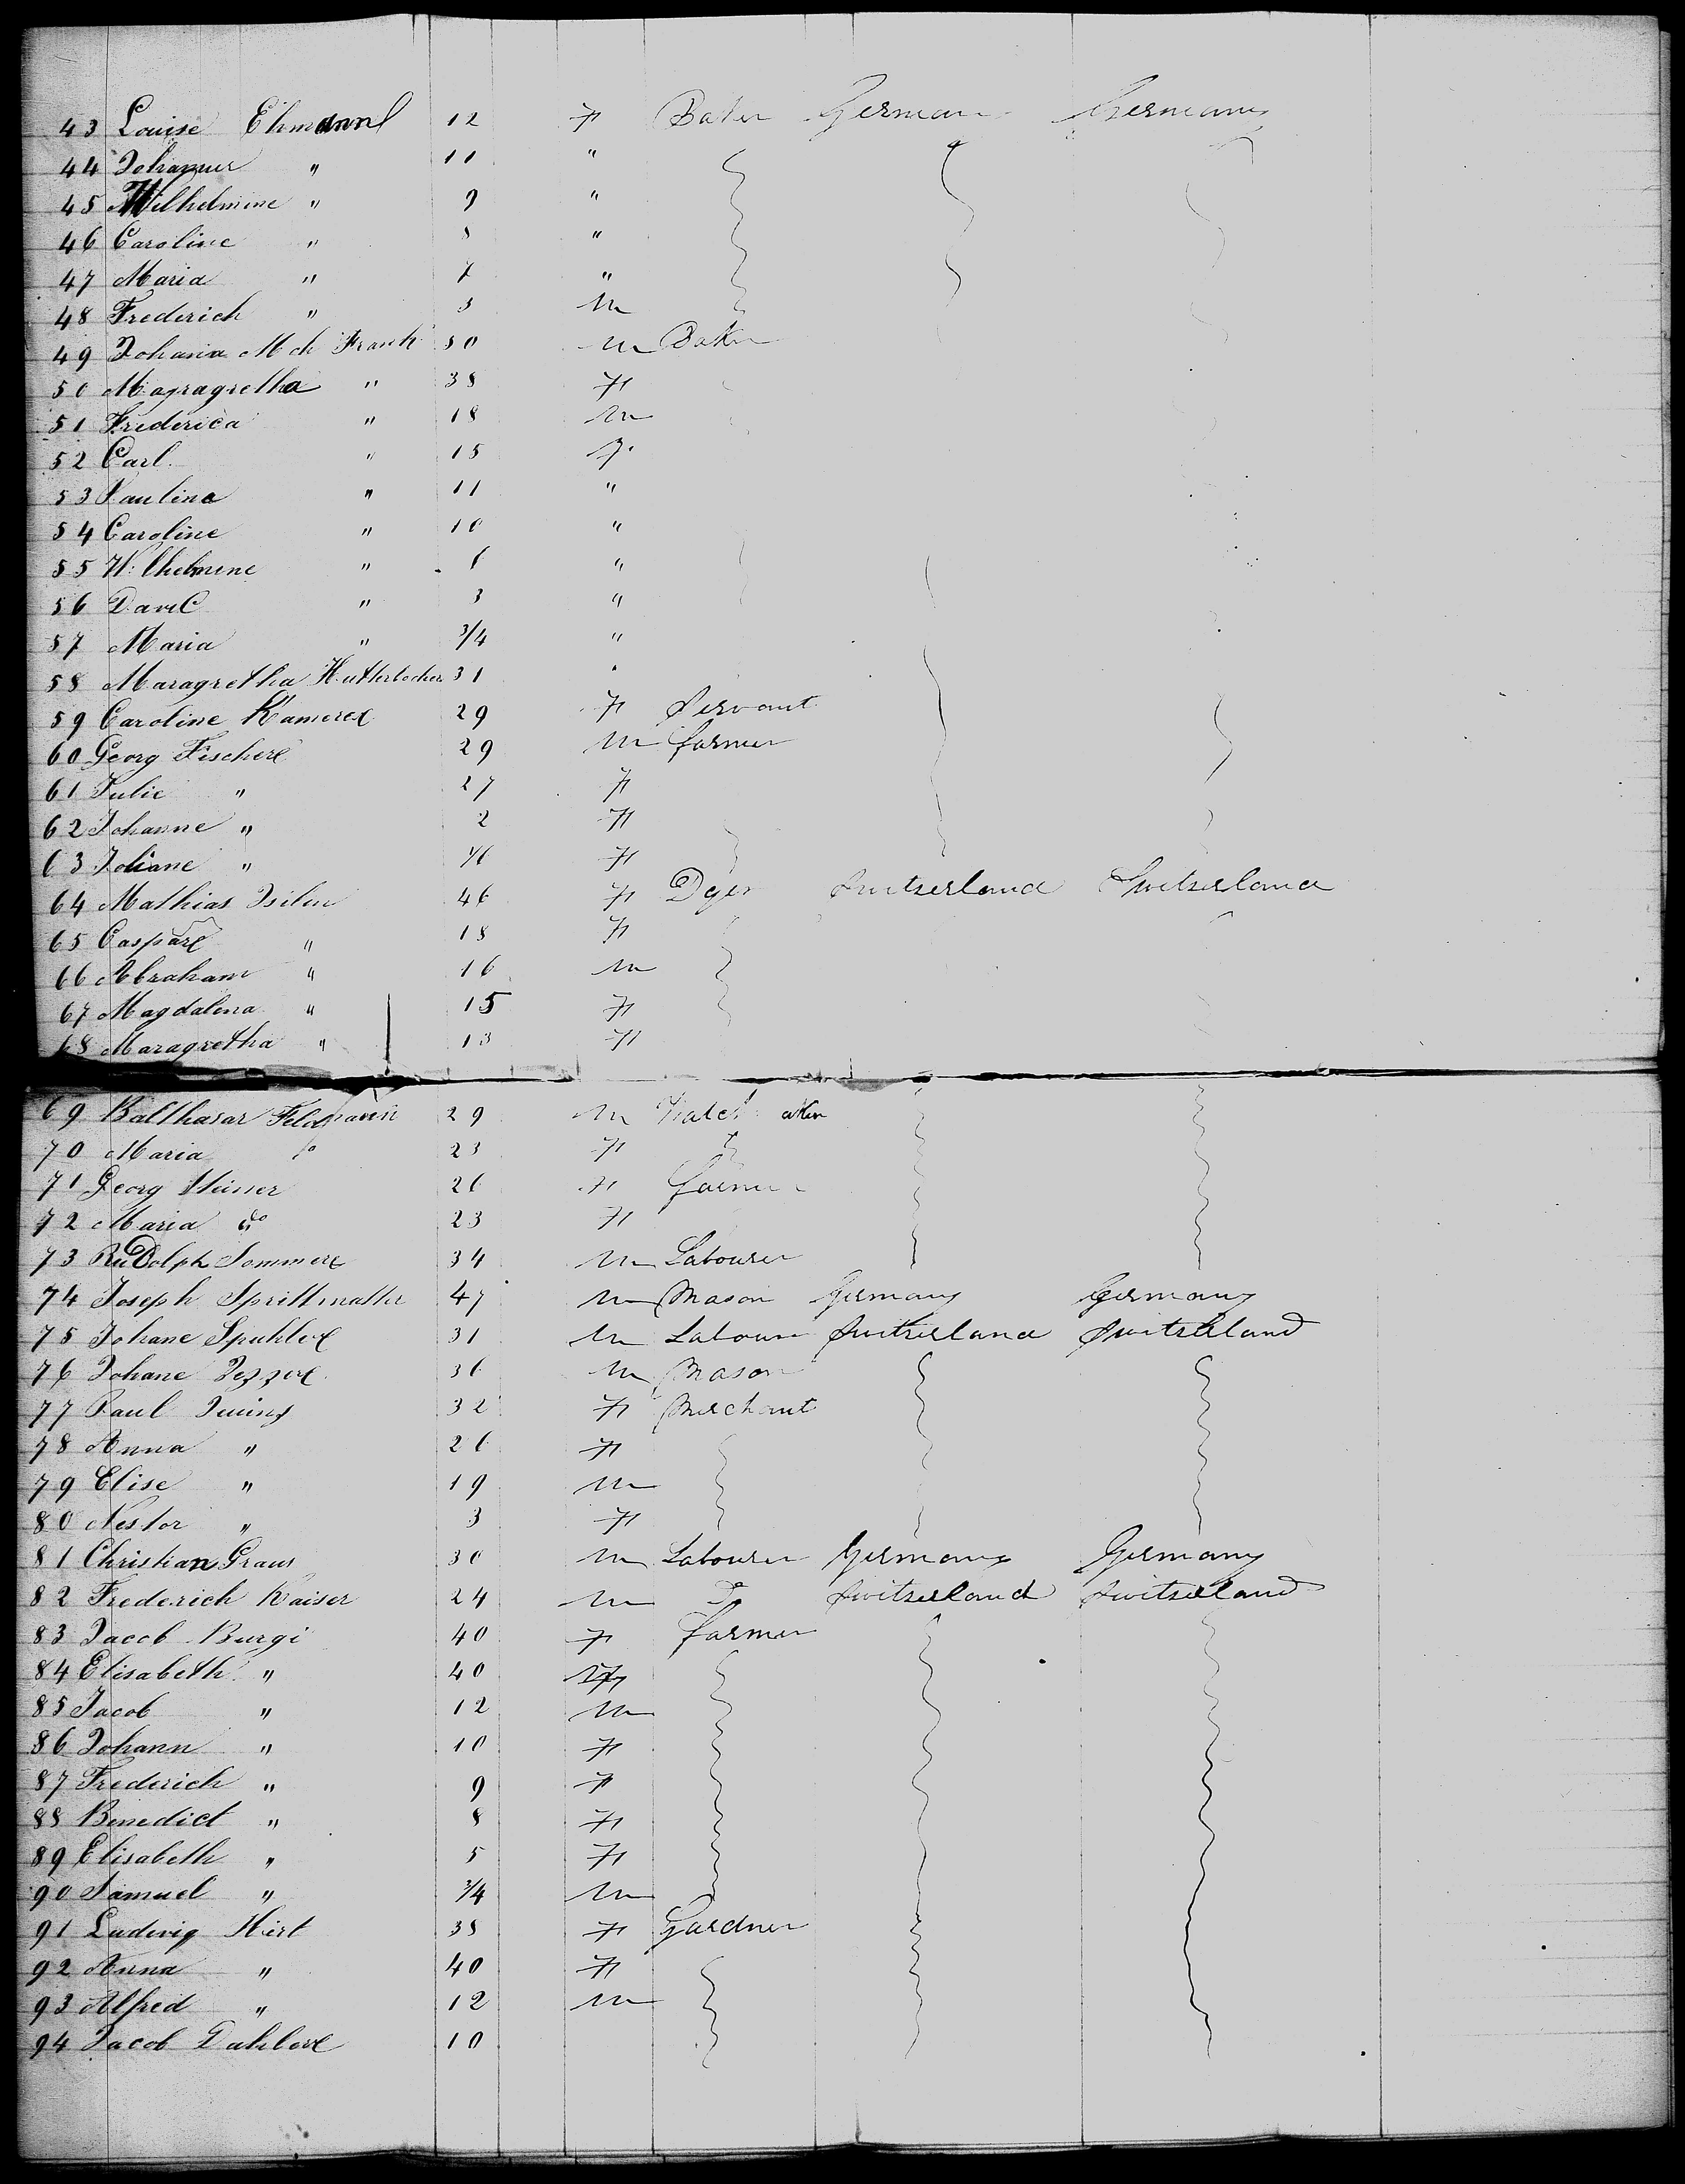 43 Louise Ehmann 12 F Baker German Germany
44 Johannes " 11 "
45 Wilhelmine " 9 "
46 Caroline " 8 "
47 Maria " 7 "
48 Frederich " 3 M
49 Johana Mch Frank 50 M Baker
50 Magragretha " 38 F
51 Frederica " 18 M
52 Carl " 15 F
53 Paulina " 11 "
54 Caroline " 10 "
55 Wilhelmine " 6 "
56 David " 3 "
57 Maria " 3/4 "
58 Maragretha Hutterlocher 31
59 Caroline Kamerer 29 F Servant
60 Georg Fischer 29 M farmer
61 Julie " 27 F
62 Johanne " 2 F
63 Joliane " F
64 Mathias Isilin 46 F Dyer Switserland Switserland
65 Caspar " 18 F
66 Abraham " 16 M
67 Magdalena " 15 F
68 Maragretha " 13 F
69 Balthasar Feldmann 29 M
70 Maria do 23 F
71 Georg 26 F Farmer
72 Maria do 23 F
73 Rudolph Sommer 34 M Labourer
74 Joseph Sprittmatter 47 M Mason Germany Germany
75 Johane Spuhler 31 M Labour Switserland Switserland
76 Johane 36 M Mason
77 Paul 32 F Merchant
78 Anna " 26 F
79 Elise " 19 M
80 Nestor " 3 F
81 Christian Graus 30 M Labourer Germany Germany
82 Frederich Kaiser 24 M Do Switserland Switserland
83 Jacob Burgi 40 F farmer
84 Elisabeth " 40 F
85 Jacob " 12 M
86 Johann " 10 F
87 Frederich " 9 F
88 Benedict " 8 F
89 Elisabeth " 5 F
90 Samuel " 3/4 M
91 Ludwig Hirt 38 F Gardner
92 Anna " 40 F
93 Alfred " 12 M
94 Jacob Dahler 10